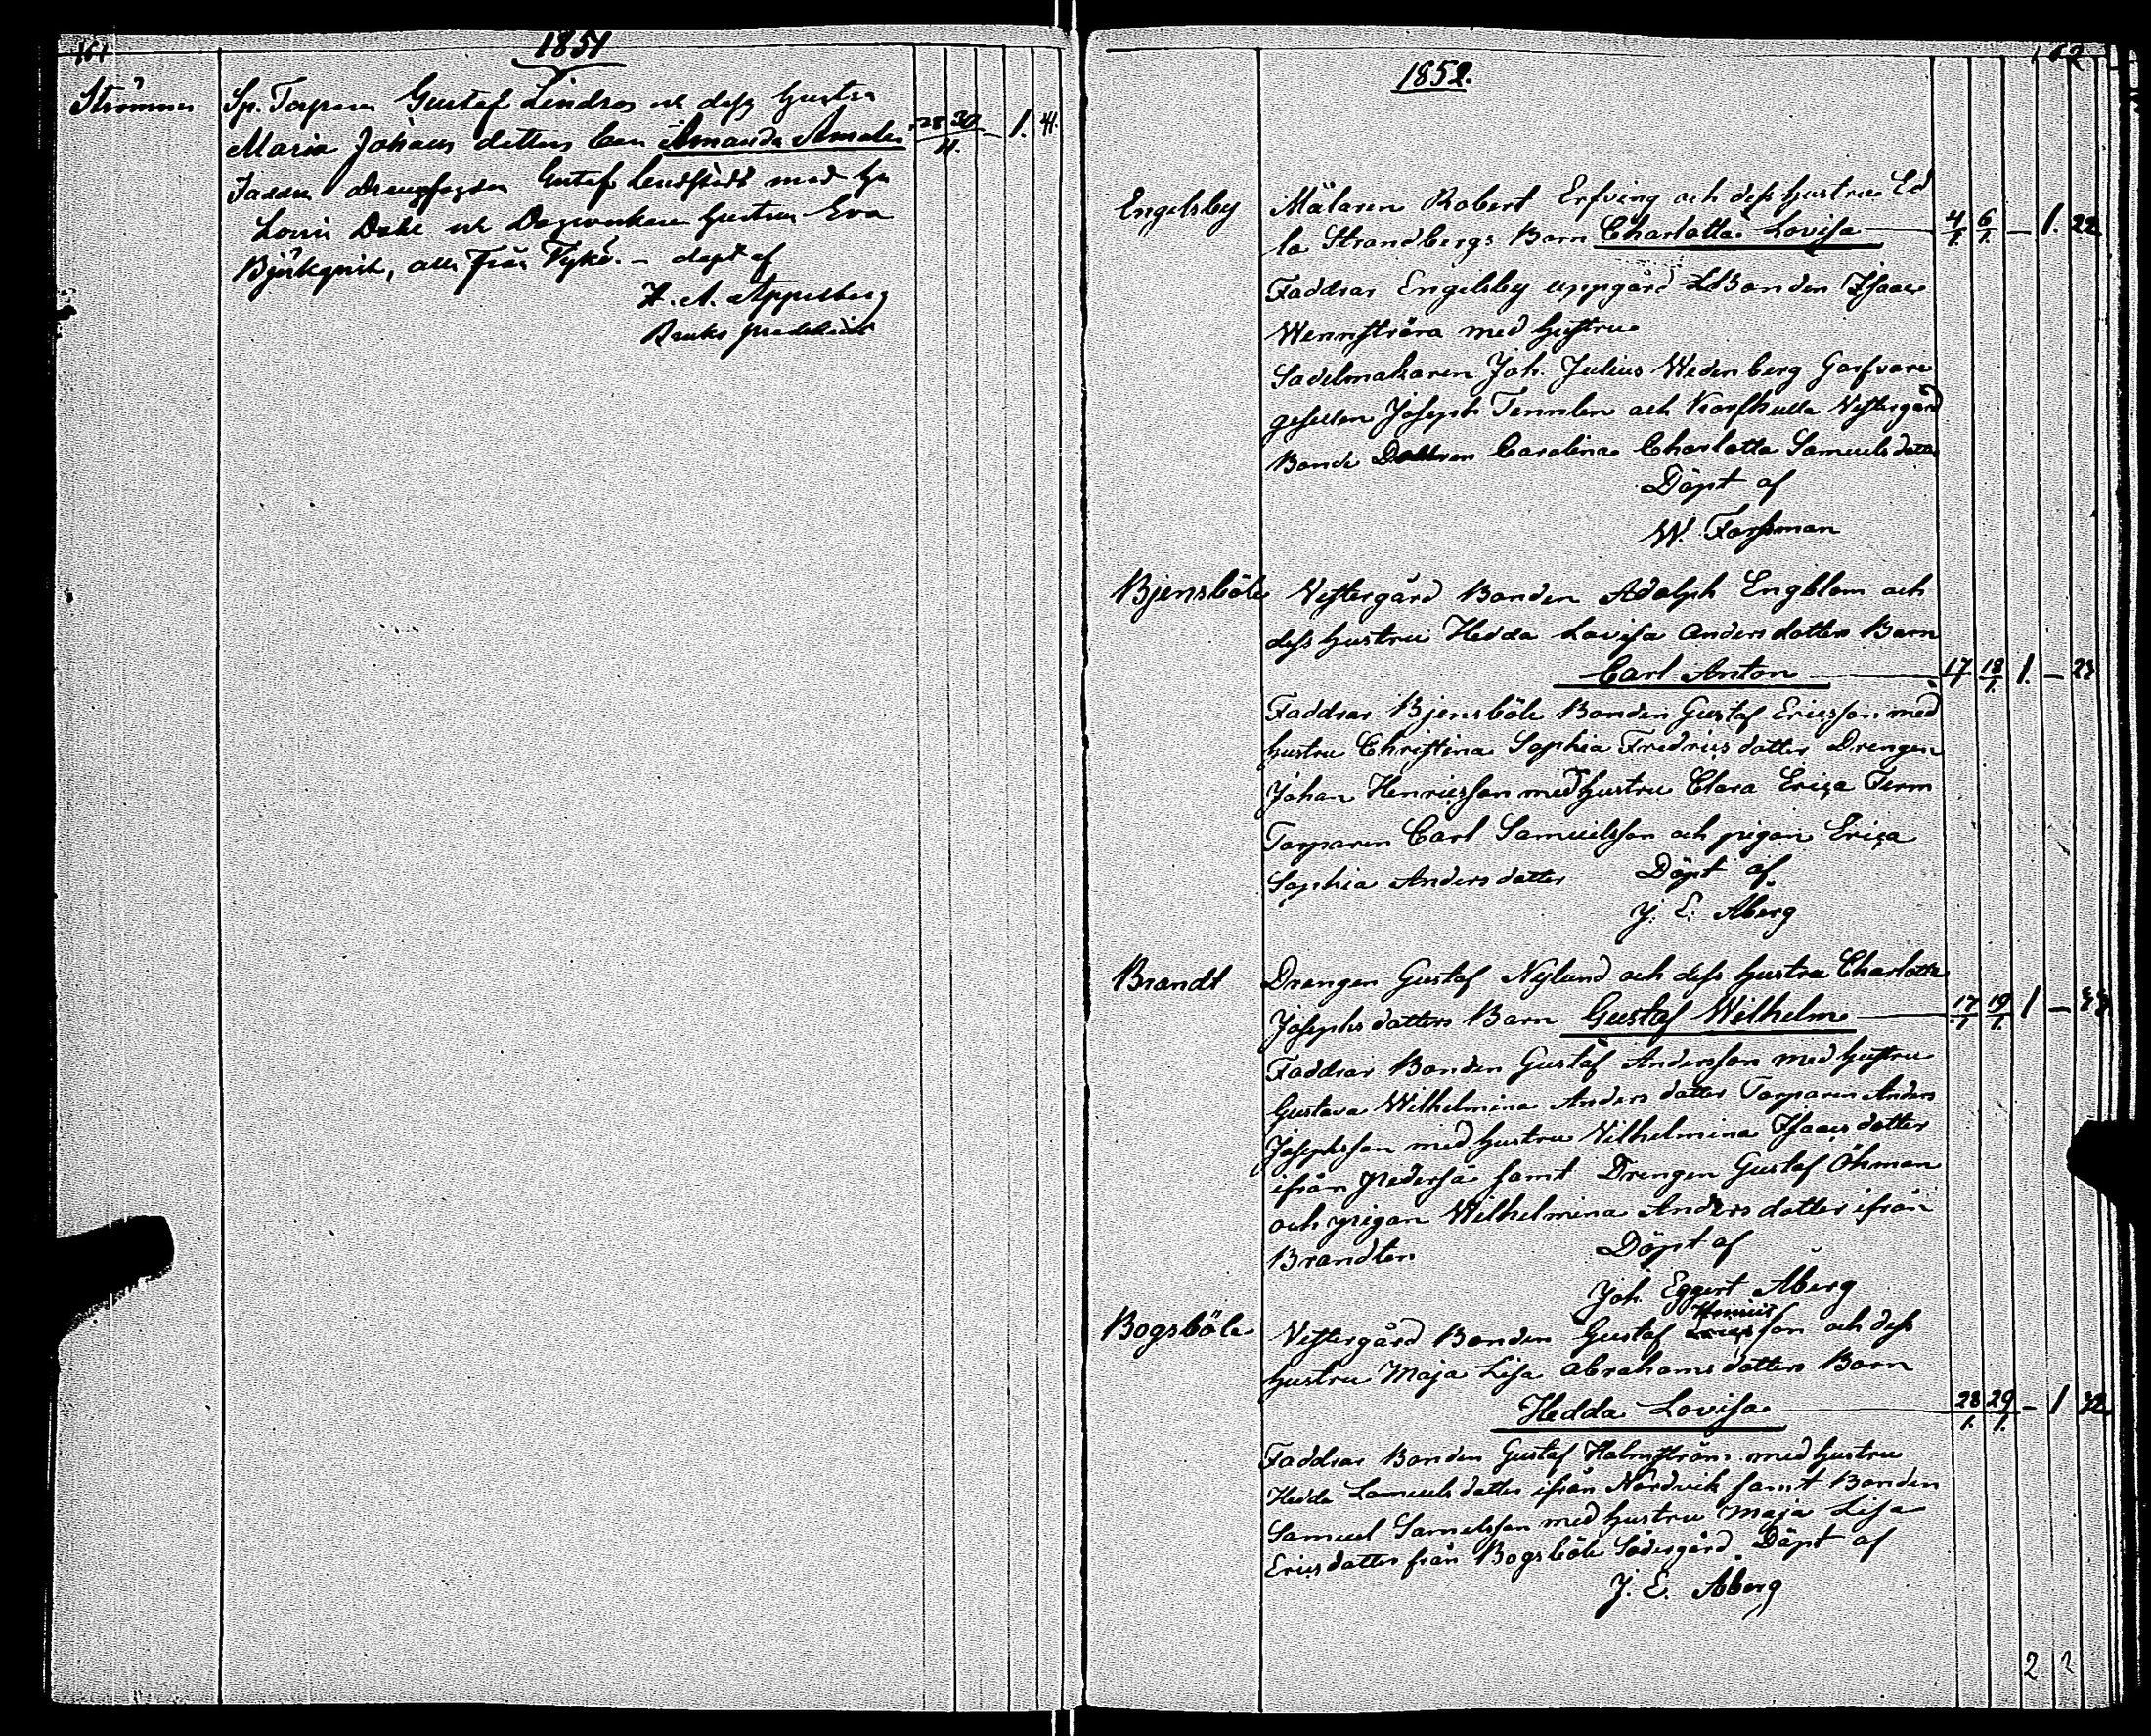 161
1851
Strömma
Sp. Torparen Gustaf Lindros och dess hustru
Maria Johans dotters barn Amanda Amalia 28 30 — 1. 41.
4.
Faddrar Gustaf med
Louis och hustru Eva
Björkqvist, alla från Tykö. — döpt af
Appelberg
Bruks predikant
162
1852.
Engelsby
Mälaren Robert Erfving och dess hustru Ed
la Strandbergs Barn Charlotta Lovisa 4/1. 6/1. — 1. 22
Faddrar Engelsby uppgård Bonden Isaac
Wennström med hustru
Sadelmakaren Joh. Julius Wedenberg Garfvare
gesellen Joseph Tennlen och Korshulla Vestergård
Bonde Dottren Carolina Charlotta Samuels dotter
Döpt af
W. Forssman
Bjensböle
Vestergård Bonden Adolph Engblom och
dess hustru Hedda Lovisa Anders dotters Barn
Carl Anton 17/1 18/1. 1. — 23
Faddrar Bjensböle Bonden Gustaf Ericsson med
hustru Christina Sophia Fredrics dotter Drengen
Johan Henricsson med hustru Clara Erica Term
Torparen Carl Samuelsson och pigan Erica
Sophia Anders dotter Döpt af
J. E. Åberg
Brandt
Drengen Gustaf Nylund och dess hustru Charlotta
Josephs dotters Barn Gustaf Wilhelm 17/1 19/1. 1 —
Faddrar Bonden Gustaf Andersson med hustru
Gustava Wilhelmina Anders dotter Torparen Anders
Josephsson med hustru Vilhelmina Isaacs dotter
ifrån Pederså samt Drengen Gustaf Öhman
och pigan Wilhelmina Anders dotter ifrån
Brandten Döpt af
Joh. Eggert Åberg
Bogsböle
Henrics
Vestergård Bonden Gustaf son och dess
hustru Maja Lisa Abrahams dotters Barn
Hedda Lovisa 28/1. 29/1. — 1 32
Faddrar Bonden Gustaf Holmström med hustru
Hedda Samuels dotter ifrån Nordvik samt Bonden
Samuel Samelsson med hustru Maja Lisa
Erics dotter från Bogsböle Södergård Döpt af
J. E. Åberg
2 2